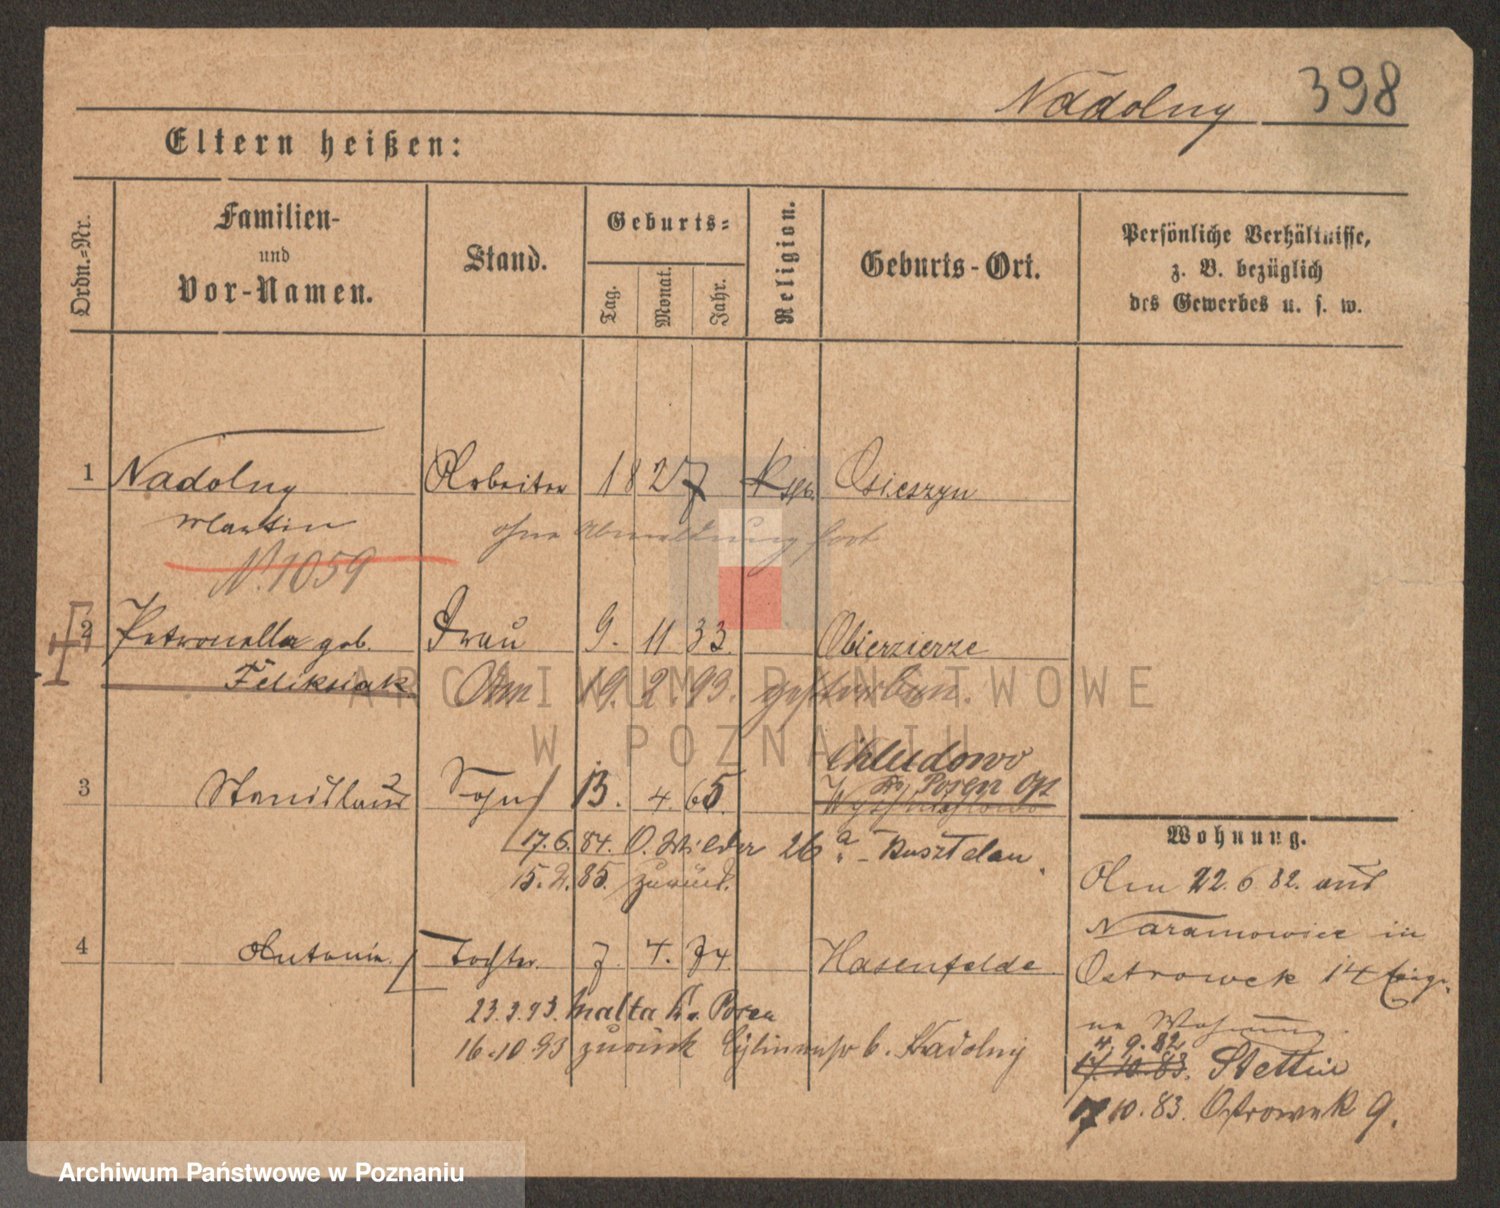 Nadolny 398
Eltern heißen:
Ordn.=Nr.
Familien-
und
Vor-Namen.
Stand.
Geburts=
Tag.
Monat.
Jahr.
Religion.
Geburts-Ort.
Persönliche Verhältnisse,
z. B. bezüglich
des Gewerbes u. s. w.
1 Nadolny Arbeiter 1827 Osieszyn
Martin ohne Abmeldung fort
N. 1059
2 Petronella geb. Frau 9. 11 33. Obierzierze
Feliksiak Am 19. 2. 93. gestorben.
Chludowo
3 Stanislaus Sohn 13. 4. 65. Posen
17.6.84. O. Wilder 26 a
15.2.85. zurück.
4 Antonie Tochter 7. 4. 74 Hasenfelde
23.3.93. Malta Kr. Posen
16.10.93 zurück b. Nadolny
Wohnung.
Am 22.6.82. aus
Naramowice in
Ostrowek 14
Wohnung.
4.9.82
17.10.83. Stettin
17 10.83. Ostrowek 9.
ARCHIWUM PAŃSTWOWE
W POZNANIU
Archiwum Państwowe w Poznaniu